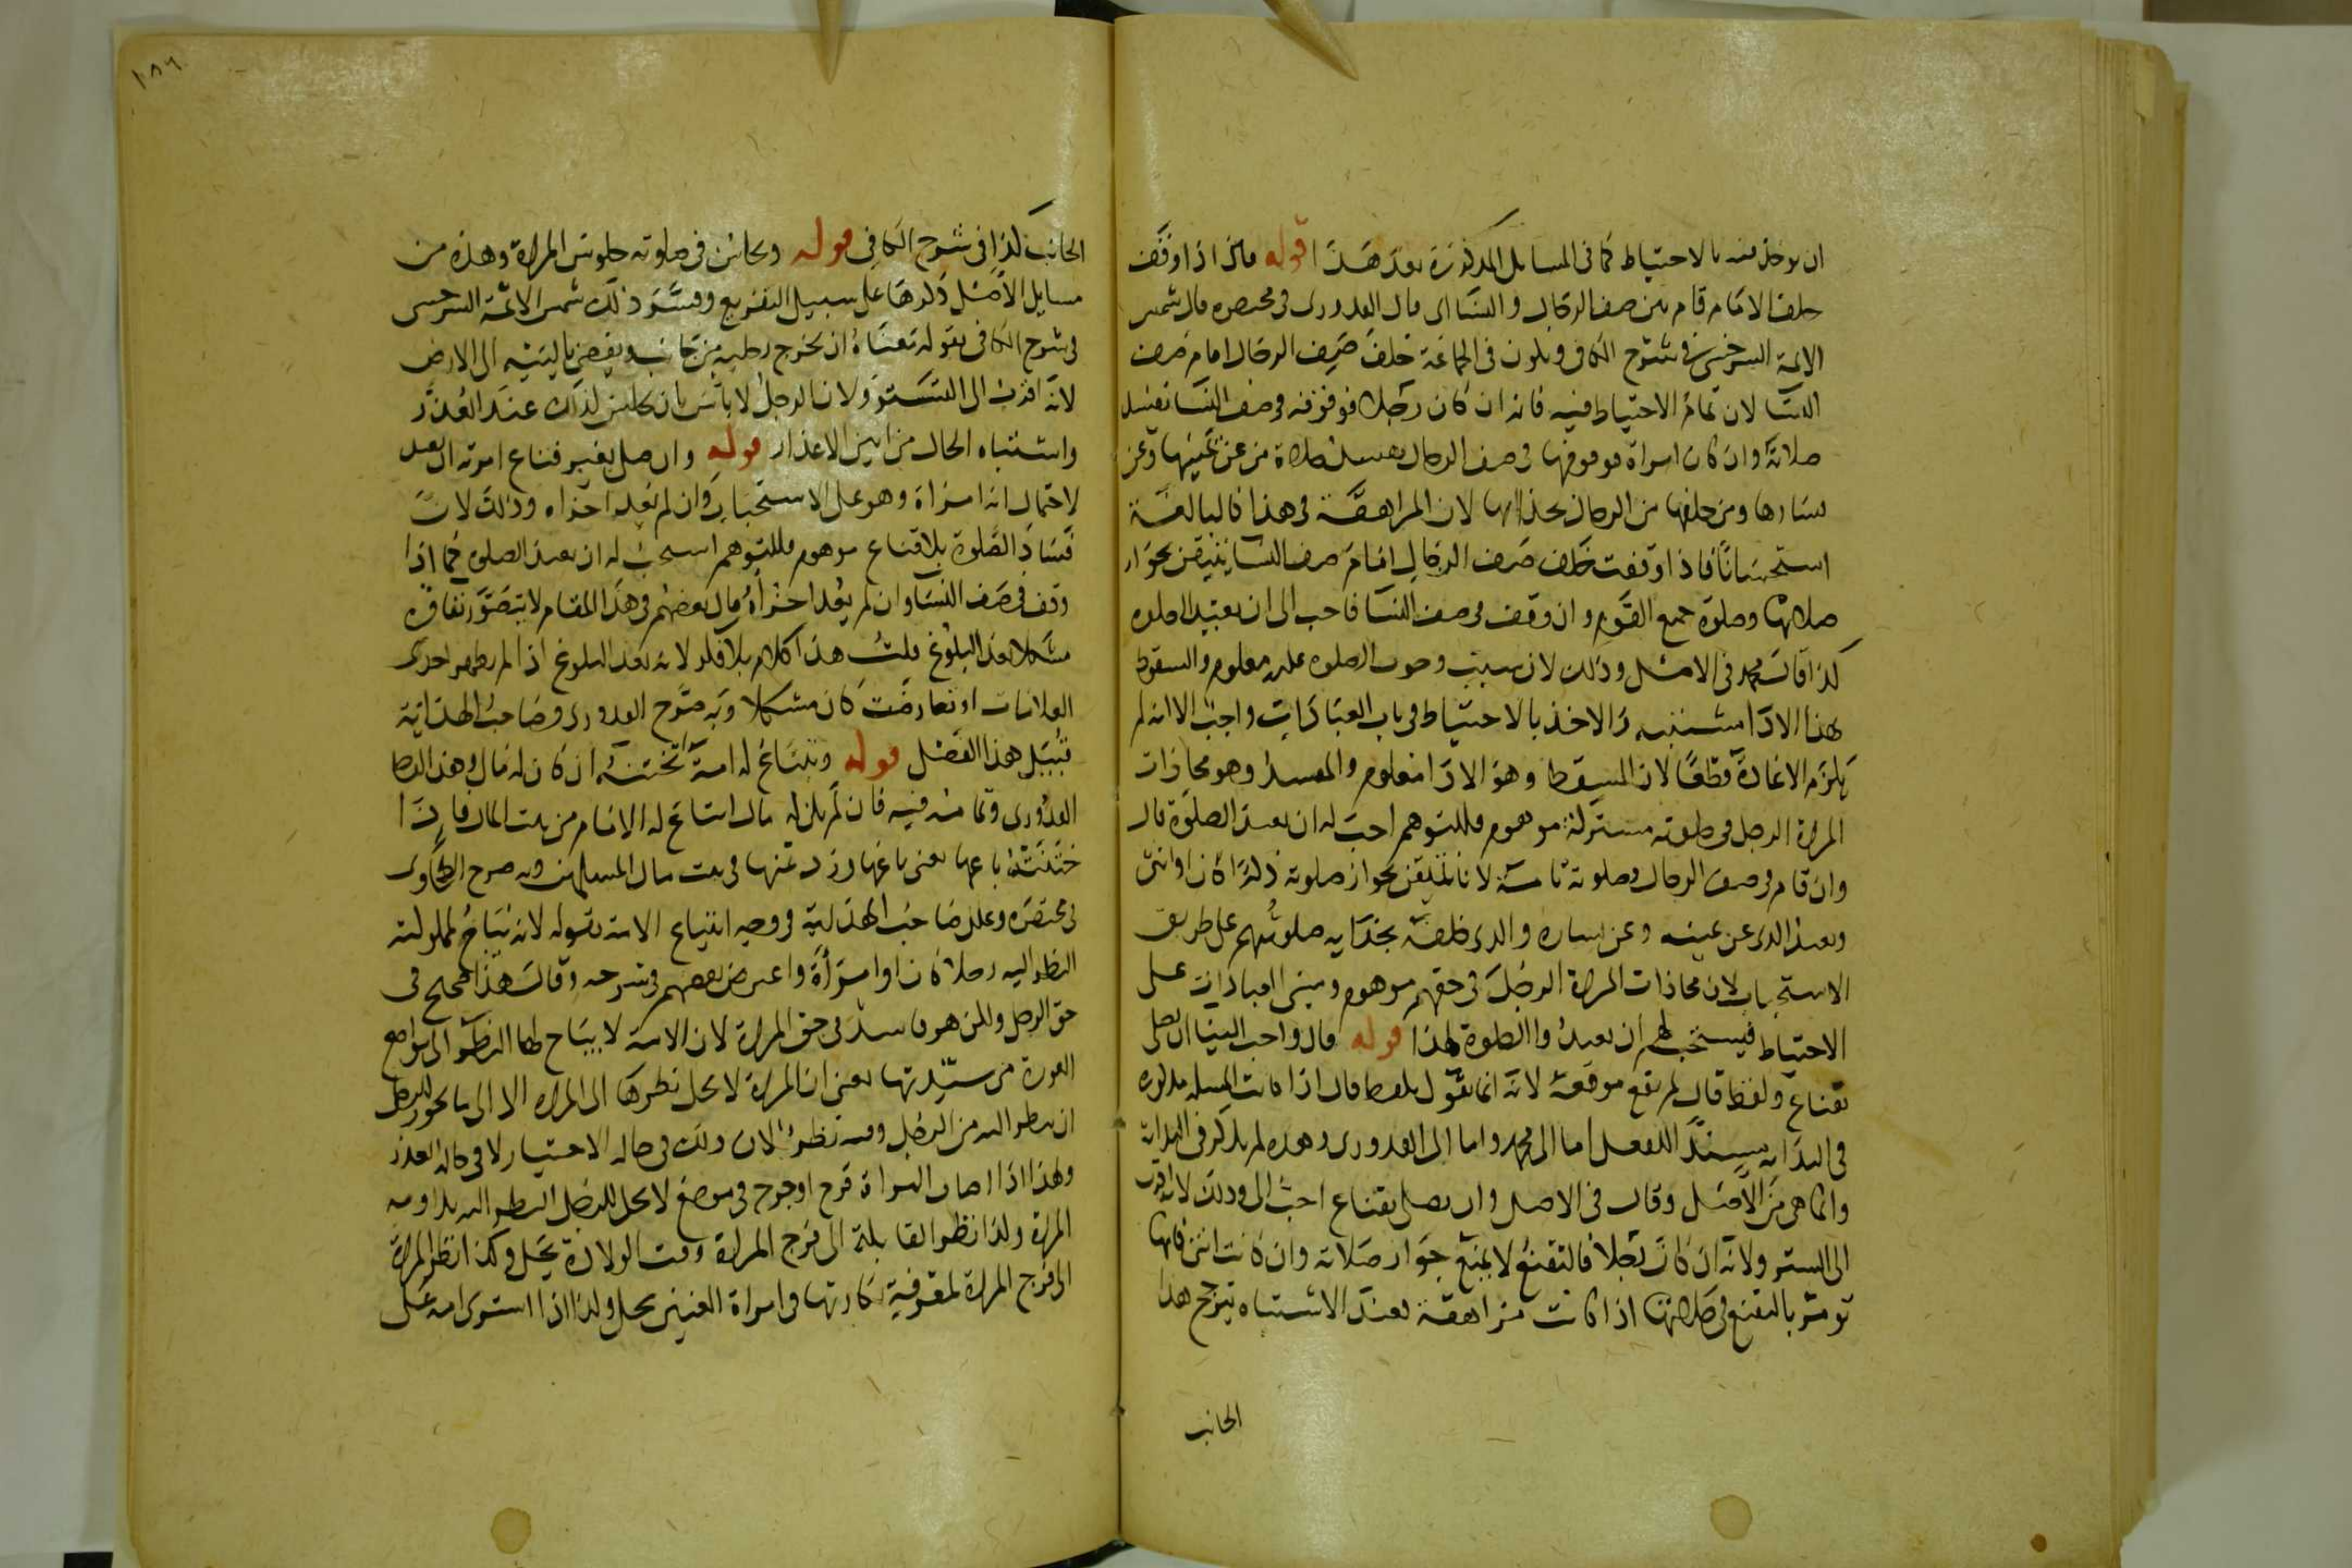 ان يوخذ فيه بالاحتياط كما في المسايل المذكورة بعد هذا قوله فان اذا وقف
خلف الامام قام بين صف الرجال والنسا اي قال القدوري في مختصره قال شمس
الايمة السرخسي في شرح الكافي ويكون في الجماعة خلف صف الرجال امام صف
النسا لان تمام الاحتياط فيه فانه ان كان رجلا فوقوفه في صف النسا تفسد
صلاته وان كان امراة فوقوفها في صف الرجال يفسد صلاة من عن يمينها وعن
يسارها ومن خلفها من الرجال بحذايها لان المراهقة في هذا كالبالغة
استحسانا فاذا وقفت خلف صف الرجال امام صف النسا نتيقن بجواز
صلاتها وصلوة جميع القوم وان وقف في صف النسا فاحب الى ان يعيد الصلوه
كذا قال محمد في الاصل وذلك لان سبب وجوب الصلوه عليه معلوم والسقوط
بهذا الادا مشتبه والاخذ بالاحتياط في باب العبادات واجب الا انه لم
يلزم الاعادة قطعا لان المسقط وهو الادا معلوم والمفسد وهو محاذات
المراة الرجل في صلوته مشتركة موهوم فللتوهم احب له ان يعيد الصلوة قال
وان قام في صف الرجال وصلوته تامة لانا نتيقن بجواز صلوته ذكرا كان او انثى
ويعيد الذي عن يمينه وعن يساره والذي خلفه بحذايه صلوتهم على طريق
الاستحباب لان محاذات المراة الرجل في حقهم موهوم ومبنى العبادات على
الاحتياط فيستحب لهم ان يعيدوا الصلوة لهذا قوله قال واحب الينا ان يصلي
بقناع ولفظ قال لم يقع موقعه لانه انما يقول بلفظ قال اذا كانت المسله مذكوره
في البدايه يسند الفعل اما الى محمد واما الى القدوري وهذه لم يذكر في البداية
وانما هي من الاصل وقال في الاصل وان يصلي بقناع احب الي وذلك لانه اقرب
الى الستر ولانه ان كان رجلا فالتقنع لا يمنع جواز صلاته وان كانت انثى فانها
تومر بالتقنع في صلاتها اذا كانت مراهقة فعند الاشتباه يترجح هذا
الجانب
١٠٨٦
الجانب كذا في شرح الكافي قوله ويجلس في صلوته جلوس المراة وهذه من
مسايل الاصل ذكرها على سبيل التفريع وفسر ذلك شمس الائمة السرخسي
في شرح الكافي بقوله معناه ان يخرج رجليه من جانب ويفضي باليتيه الى الارض
لانه اقرب الى التستر ولان الرجل لا باس بان يجلس كذلك عند العذر
واشتباه الحال من ابين الاعذار قوله وان صلى بغير قناع امرته ان يعيد
لاحتمال انه امراة وهو على الاستحباب وان لم يعد اجزاه وذلك لان
فساد الصلوة بلا قناع موهوم فللتوهم استحب له ان يعيد الصلوه كما اذا
وقف في صف النسا وان لم يعد اجزاه قال بعضهم في هذا المقام لا يتصور بقاؤه
مشكلا بعد البلوغ قلت هذا كلام بلا فكر لانه بعد البلوغ اذا لم يظهر احدى
العلامات او تعارضت كان مشكلا وبه صرح القدوري وصاحب الهداية
قبيل هذا الفصل قوله وتبتاع له امة تختنه ان كان له مال وهذا لفظ
القدوري وتمامه فيه فان لم يكن له مال ابتاع له الامام من بيت المال فاذا
ختنته باعها يعني باعها ورد ثمنها في بيت مال المسلمين وبه صرح الطحاوي
في مختصره وعلل صاحب الهداية في وجه ابتياع الامة بقوله لانه يباح لمملوكته
النظر اليه رجلا كان او امراة واعترض بعضهم في شرحه وقال هذا صحيح في
حق الرجل ولكن هو فاسد في حق المراة لان الامة لا يباح لها النظر الى مواضع
العورة من سيدتها يعني ان المراة لا يحل نظرها الى المراه الا الى ما يجوز للرجل
ان ينظر اليه من الرجل وفيه نظر لان ذلك في حاله الاختيار لا في حالة العذر
ولهذا اذا اصاب امراة قرح او جرح في موضع لا يحل للرجل النظر اليه يداويه
المراة وكذا نظر القابلة الى فرج المراة وقت الولادة يحل وكذا نظر المراة
الى فرج المراة لمعرفة بكارتها في امراة العنين يحل وكذا اذا اشترى امة على